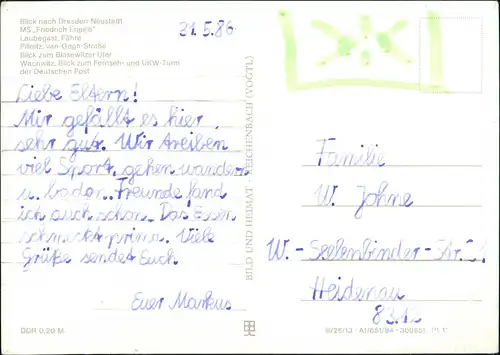 Blick nach Dresden-Neustadt
MS „Friedrich Engels“
Laubegast, Fähre
Pillnitz, van-Gogh-Straße
Blick zum Blasewitzer Ufer
Wachwitz, Blick zum Fernseh- und UKW-Turm
der Deutschen Post
31.5.86
Liebe Eltern!
Mir gefällt es hier
sehr gut. Wir treiben
viel Sport, gehen wandern
u. baden. Freunde fand
ich auch schon. Das Essen
schmeckt prima. Viele
Grüße sendet Euch
Euer Markus
DDR 0,20 M
BILD UND HEIMAT REICHENBACH (VOGTL)
Familie
W. Johne
W.-Seelenbinder-Str.
Heidenau